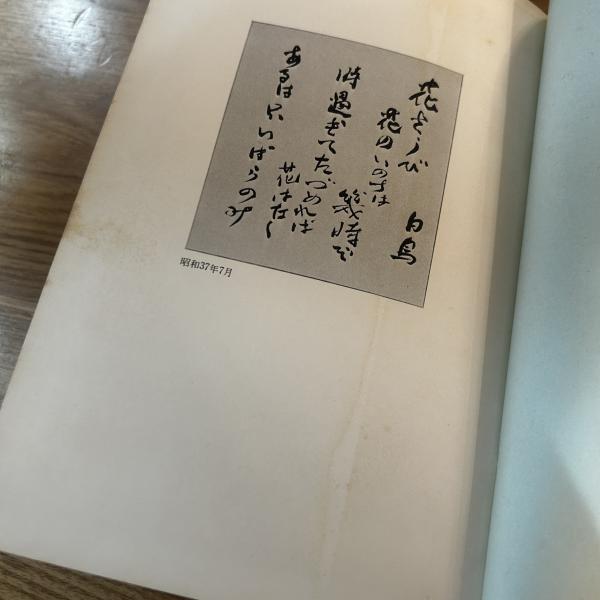 花さうび
白鳥
花のいのちは
幾時ぞ
時過ぎてたづぬれば
花はなく
あるは只いばらのみ
昭和37年7月